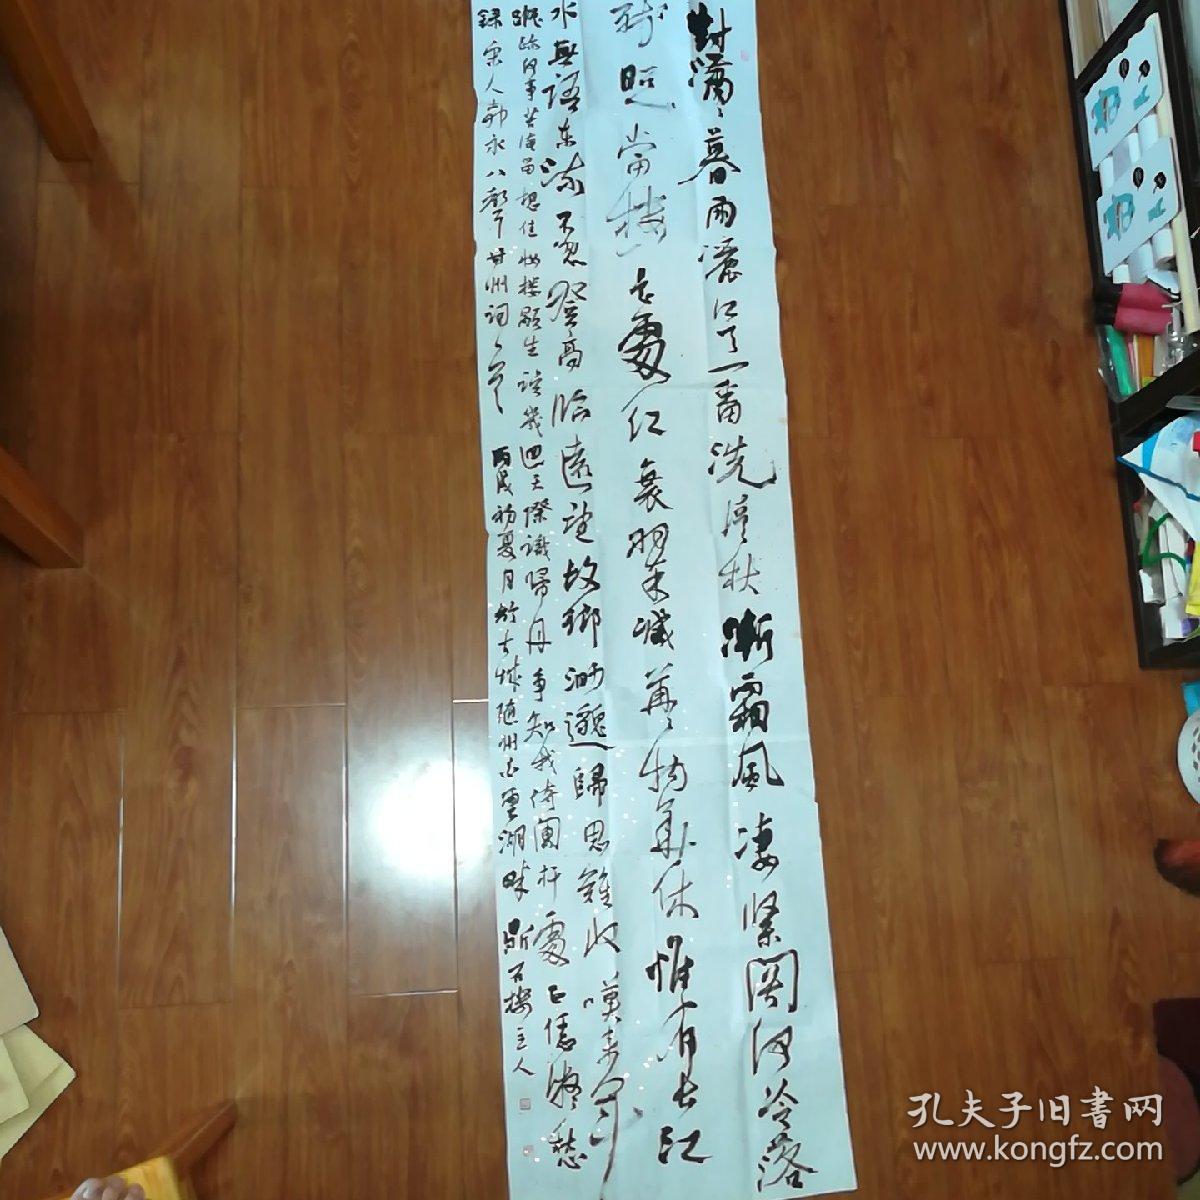 對瀟瀟暮雨灑江天一番洗清秋漸霜風凄緊關河冷落
殘照當樓是處紅衰翠減苒苒物華休惟有長江
水無語東流不忍登高臨遠望故鄉渺邈歸思難收嘆來年
蹤跡何事苦淹留想佳妝樓顒望誤幾回天際識歸舟爭知我倚闌杆處正恁凝愁
錄宋人柳永八聲甘州詞
丙戌初夏月於古城隨州白雲湖畔
石樓主人
孔夫子旧書网
www.kongfz.com